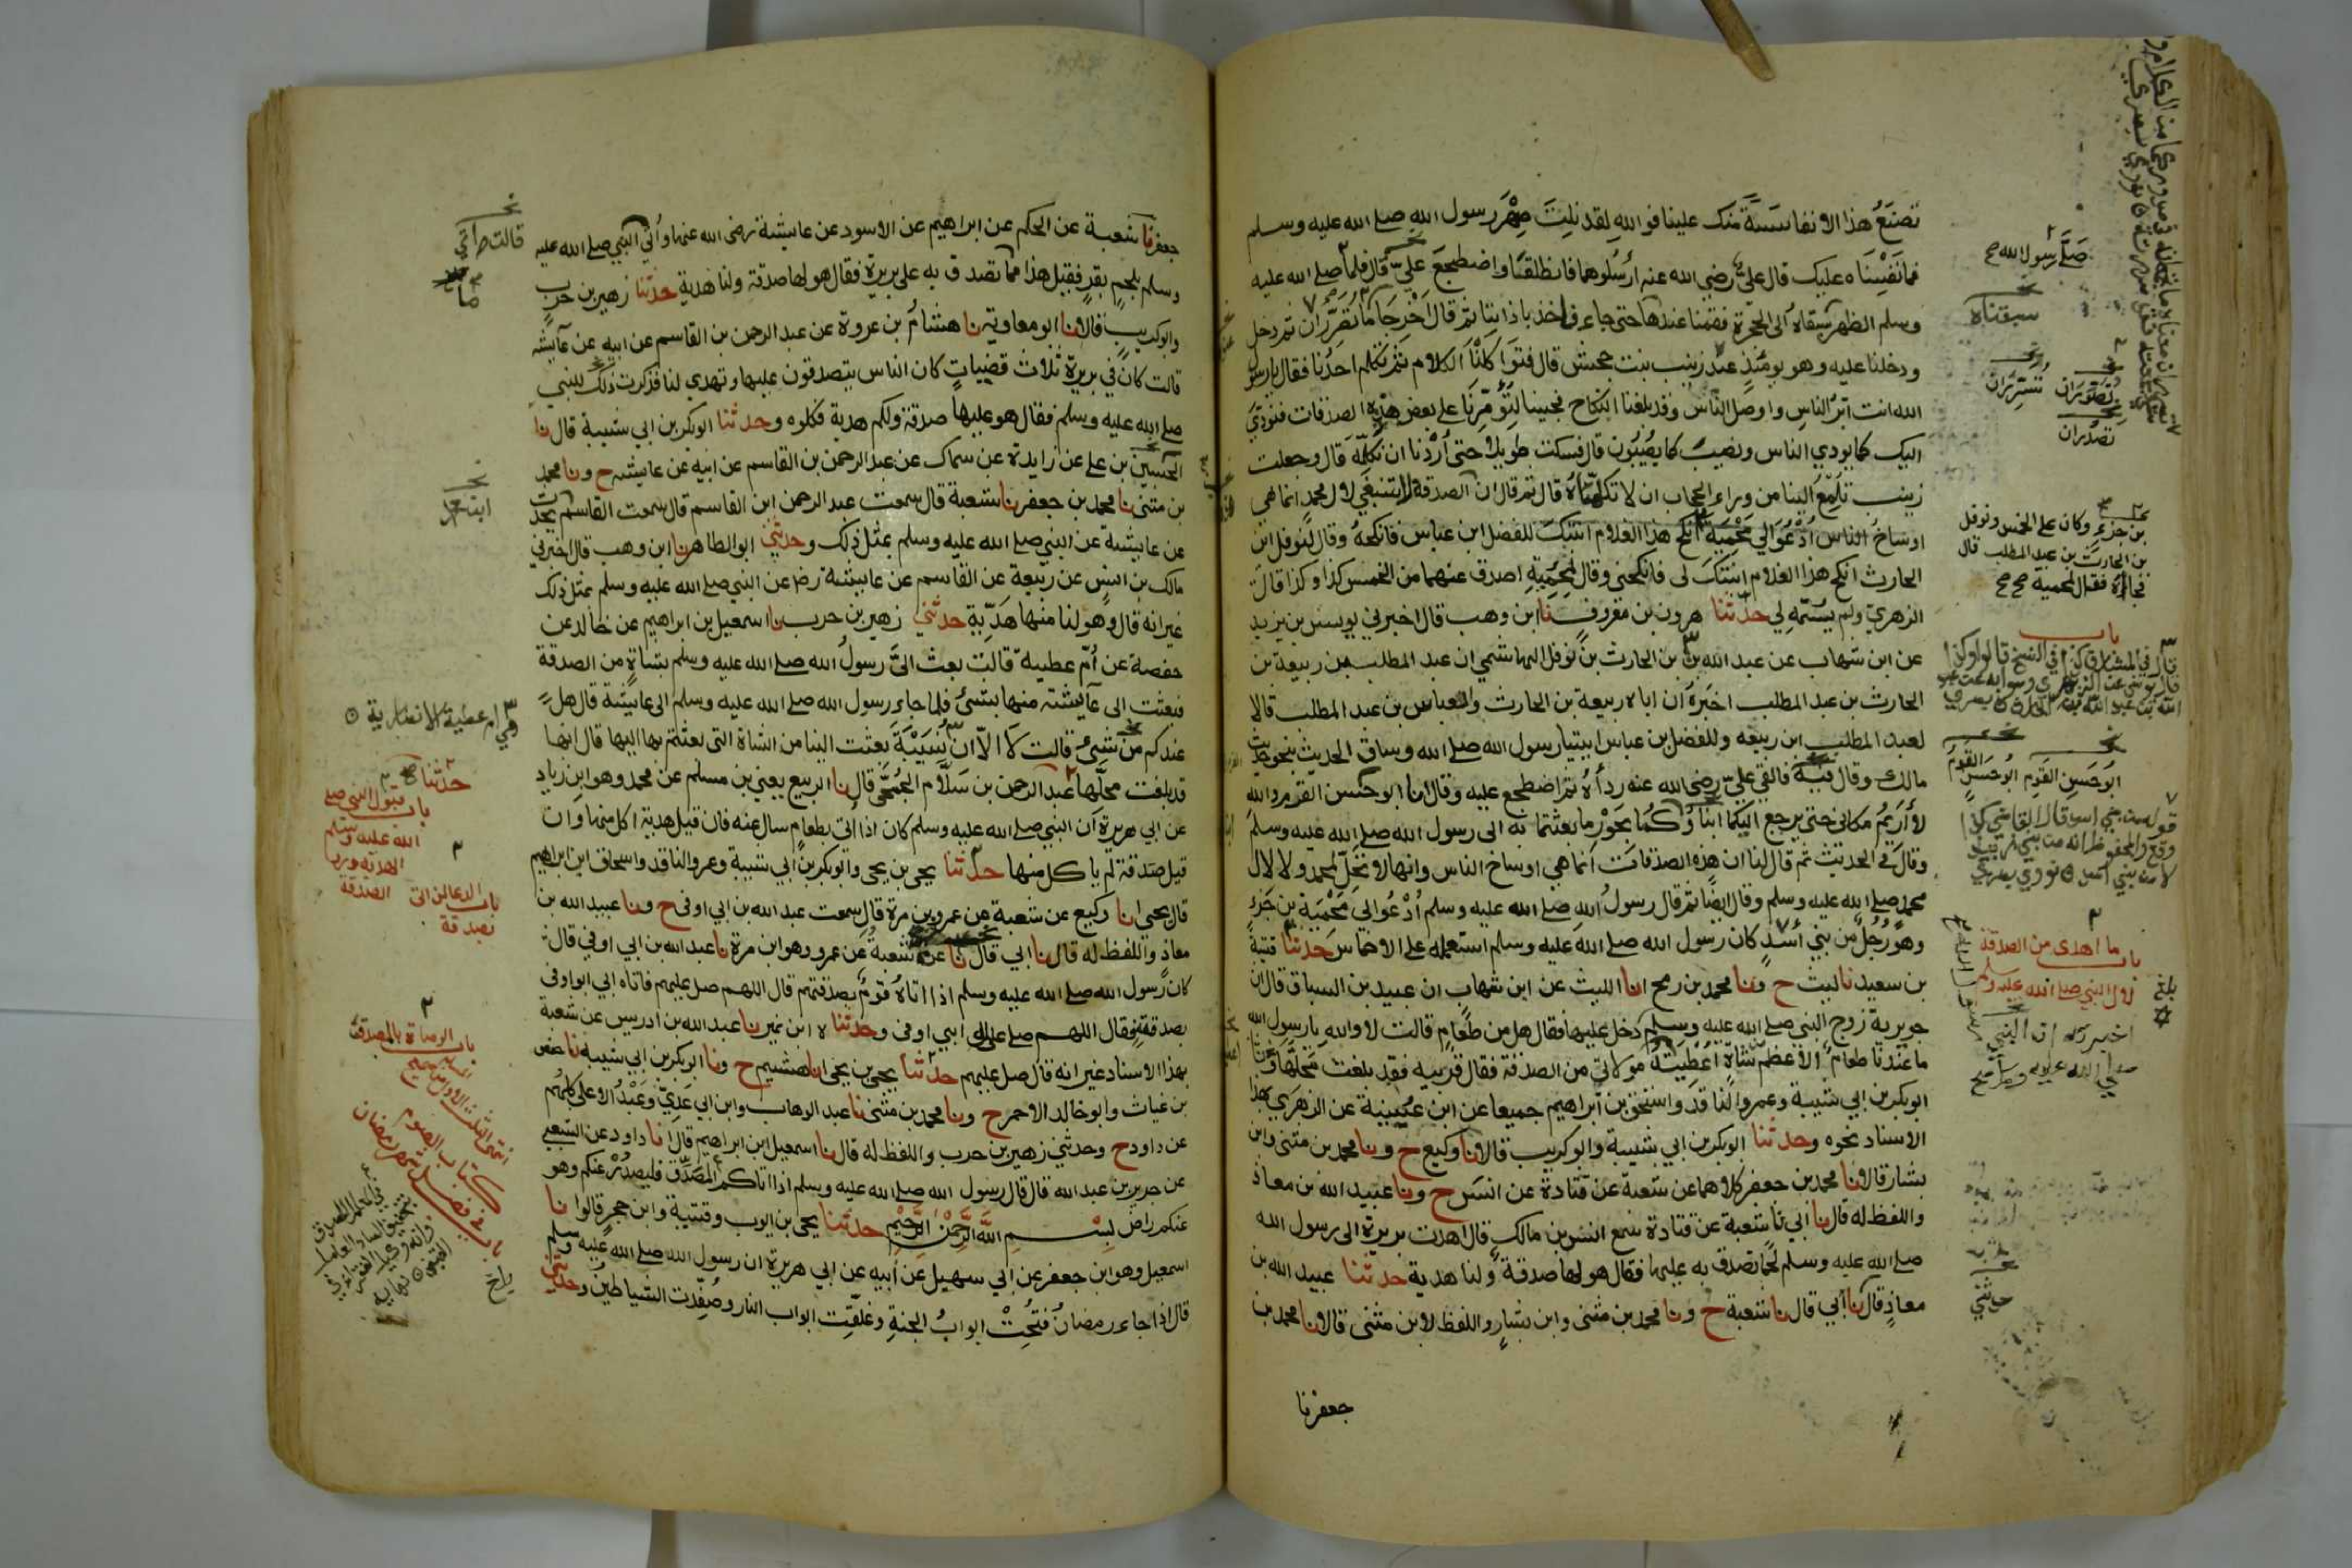 تصنع هذا الا نفاسة منك علينا فوالله لقد نلت صهر رسول الله صلى الله عليه وسلم
فما نفسناه عليك قال علي رضي الله عنه ارسلوهما فانطلقنا واضطجع علي قال فلما صلى الله عليه
وسلم الظهر سبقاه الى الحجرة فقمنا عندها حتى جاء فاخذ باذاننا ثم قال اخرجا ما تصرران ثم دخل
ودخلنا عليه وهو يومئذ عند زينب بنت جحش قال فتواكلنا الكلام ثم تكلم احدنا فقال يا رسول
الله انت ابر الناس واوصل الناس وقد بلغنا النكاح فجينا لتؤمرنا على بعض هذه الصدقات فنودي
اليك كما يودي الناس ونصيب كما يصيبون قال فسكت طويلا حتى اردنا ان نكلمه قال وجعلت
زينب تلمع الينا من وراء الحجاب ان لا تكلماه قال ثم قال ان الصدقة لا تنبغي لآل محمد انما هي
اوساخ الناس ادعوا لي محمية انكح هذا الغلام ابنتك للفضل ابن عباس فانكحه وقال لنوفل ابن
الحارث انكح هذا الغلام ابنتك لي فانكحني وقال لمحمية اصدق عنهما من الخمس كذا وكذا قال
الزهري ولم يسمه لي حدثنا هرون بن معروف نا ابن وهب قال اخبرني يونس بن يزيد
عن ابن شهاب عن عبد الله بن الحارث بن نوفل الهاشمي ان عبد المطلب بن ربيعة بن
الحارث بن عبد المطلب اخبره ان اباه ربيعة بن الحارث والعباس بن عبد المطلب قالا
لعبد المطلب ابن ربيعه وللفضل بن عباس ايتيا رسول الله صلى الله وساق الحديث بنحو حديث
مالك وقال فيه فالقى علي رضي الله عنه رداءه ثم اضطجع عليه وقال انا ابو حسن القرم والله
لا اريم مكاني حتى يرجع اليكما ابناكما بحور ما بعثتما به الى رسول الله صلى الله عليه وسلم
وقال في الحديث ثم قال لنا ان هذه الصدقات انما هي اوساخ الناس وانها لا تحل لمحمد ولا لآل
محمد صلى الله عليه وسلم وقال ايضا ثم قال رسول الله صلى الله عليه وسلم ادعوا لي محمية بن جزء
وهو رجل من بني اسد كان رسول الله صلى الله عليه وسلم استعمله على الاخماس حدثنا قتيبة
بن سعيد نا ليث ح ونا محمد بن رمح انا الليث عن ابن شهاب ان عبيد بن السباق قال ان
جويرية زوج النبي صلى الله عليه وسلم دخل عليها فقال هل من طعام قالت لا والله يا رسول الله
ما عندنا طعام الا عظم شاة اعطيته مولاتي من الصدقة فقال قربيه فقد بلغت محلها
ابو بكر بن ابي شيبة وعمرو الناقد واسحق بن ابراهيم جميعا عن ابن عيينة عن الزهري بهذا
الاسناد نحوه وحدثنا ابو بكر بن ابي شيبة وابو كريب قالا نا وكيع ح ونا محمد بن مثنى وابن
بشار قالا نا محمد بن جعفر كلاهما عن شعبة عن قتادة عن انس ح ونا عبيد الله بن معاذ
واللفظ له قال نا ابي نا شعبة عن قتادة سمع انس بن مالك قال اهدت بريرة الى رسول الله
صلى الله عليه وسلم لحما تصدق به عليها فقال هو لها صدقة ولنا هدية حدثنا عبيد الله بن
معاذ قال نا ابي قال نا شعبة ح ونا محمد بن مثنى وابن بشار واللفظ لابن مثنى قالا نا محمد بن
جعفر نا
صلى رسول الله صح
سبقناه
تصدران
بن جزء وكان على الخمس ونوفل
بن الحارث بن عبد المطلب قال
فجاءه فقال لمحمية صح صح
ابو حسن القوم
باب ما اهدي من الصدقة
لآل النبي صلى الله عليه وسلم
بلغ
اخبرته ان النبي
صلى الله عليه وسلم صح
حدثني
جعفر نا شعبة عن الحكم عن ابراهيم عن الاسود عن عايشة رضى الله عنها واُتي النبي صلى الله عليه
وسلم بلحم بقر فقيل هذا مما تصدق به على بريرة فقال هو لها صدقة ولنا هدية حدثنا زهير بن حرب
وابو كريب قالا نا ابو معاوية نا هشام بن عروة عن عبد الرحمن بن القاسم عن ابيه عن عايشه
قالت كان في بريرة ثلاث قضيات كان الناس يتصدقون عليها وتهدي لنا فذكرت ذلك للنبي
صلى الله عليه وسلم فقال هو عليها صدقة ولكم هدية فكلوه وحدثنا ابو بكر بن ابي شيبة قال نا
الحسين بن علي عن زايدة عن سماك عن عبد الرحمن بن القاسم عن ابيه عن عايشه ح ونا محمد
بن مثنى نا محمد بن جعفر نا شعبة قال سمعت عبد الرحمن ابن القاسم قال سمعت القاسم يحدث
عن عايشة عن النبي صلى الله عليه وسلم بمثل ذلك وحدثني ابو الطاهر نا ابن وهب قال اخبرني
مالك بن انس عن ربيعة عن القاسم عن عايشة رض عن النبي صلى الله عليه وسلم بمثل ذلك
غير انه قال وهو لنا منها هدية حدثني زهير بن حرب نا اسمعيل بن ابراهيم عن خالد عن
حفصة عن ام عطية قالت بعث الي رسول الله صلى الله عليه وسلم بشاة من الصدقة
فبعثت الى عايشة منها بشئ فلما جاء رسول الله صلى الله عليه وسلم الى عايشة قال هل
عندكم من شيء قالت لا الا ان نسيبة بعثت الينا من الشاة التي بعثتم بها اليها قال انها
قد بلغت محلها عبد الرحمن بن سلام الجمحي قال نا الربيع يعني بن مسلم عن محمد وهو ابن زياد
عن ابي هريرة ان النبي صلى الله عليه وسلم كان اذا اتي بطعام سال عنه فان قيل هدية اكل منها وان
قيل صدقة لم ياكل منها حدثنا يحيى بن يحيى وابو بكر بن ابي شيبة وعمرو الناقد واسحاق ابن ابراهيم
قال يحيى انا وكيع عن شعبة عن عمرو بن مرة قال سمعت عبد الله بن ابي اوفى ح ونا عبيد الله بن
معاذ واللفظ له قال نا ابي قال نا شعبة عن عمرو وهو ابن مرة نا عبد الله بن ابي اوفى قال
كان رسول الله صلى الله عليه وسلم اذا اتاه قوم بصدقتهم قال اللهم صل عليهم فاتاه ابي ابو اوفى
بصدقته فقال اللهم صل على ال ابي اوفى وحدثناه ابن نمير نا عبد الله بن ادريس عن شعبة
بهذا الاسناد غير انه قال صل عليهم حدثنا يحيى بن يحيى انا هشيم ح ونا ابو بكر بن ابي شيبة نا حفص
بن غياث وابو خالد الاحمر ح ونا محمد بن مثنى نا عبد الوهاب وابن ابي عدي وعبد الاعلى كلهم
عن داود ح وحدثني زهير بن حرب واللفظ له قال نا اسمعيل ابن ابراهيم قال انا داود عن الشعبي
عن جرير بن عبد الله قال قال رسول الله صلى الله عليه وسلم اذا اتاكم المصدق فليصدر عنكم وهو
عنكم راض بسم الله الرحمن الرحيم حدثنا يحيى بن ايوب وقتيبة وابن حجر قالوا نا
اسمعيل وهو ابن جعفر عن ابي سهيل عن ابيه عن ابي هريرة ان رسول الله صلى الله عليه وسلم
قال اذا جاء رمضان فتحت ابواب الجنة وغلقت ابواب النار وصفدت الشياطين وحدثني
هي ام عطية الانصارية
حدثنا
باب قبول النبي صلى
الله عليه وسلم
الهدية ورد
الصدقة
باب الدعا لمن اتى
بصدقة